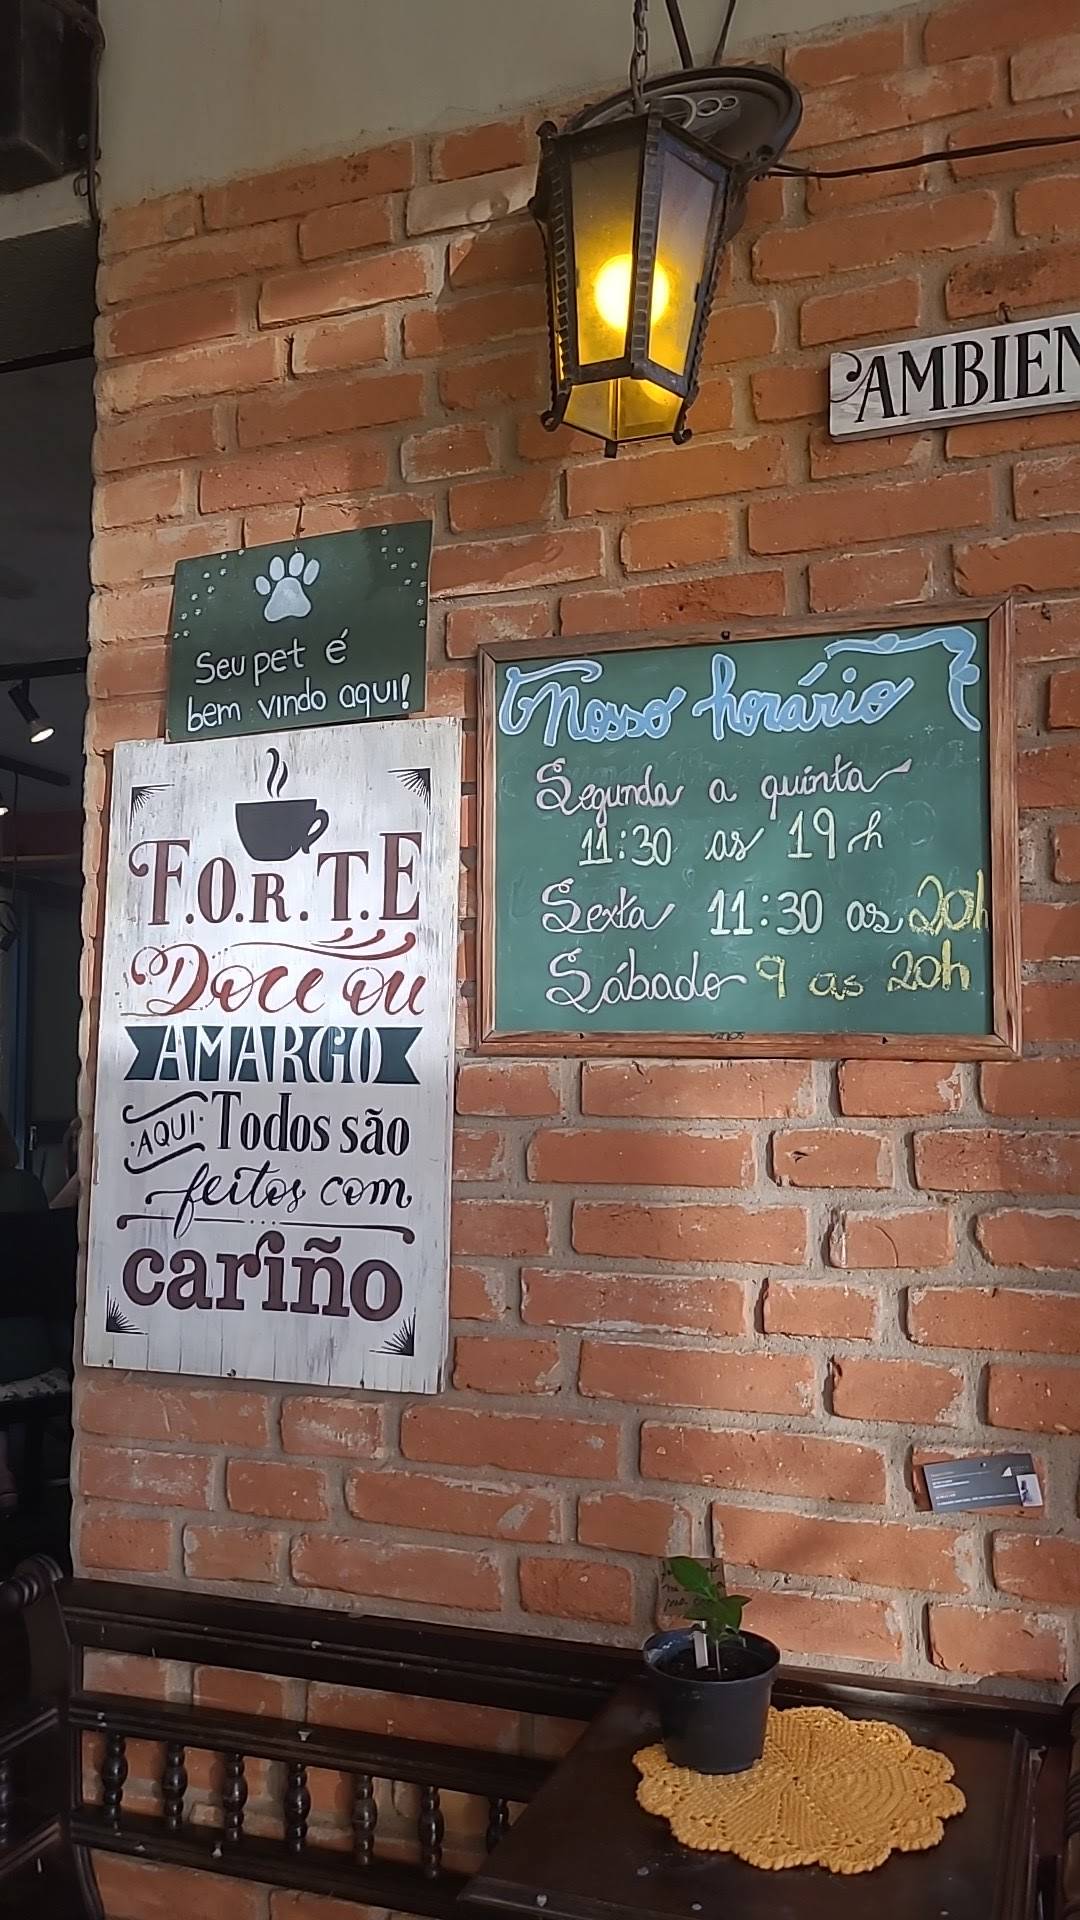 AMBIEN
Seu pet é
bem vindo aqui!
Nosso horário
Segunda a quinta
11:30 as 19h
Sexta 11:30 as 20h
Sábado 9 as 20h
F.O.R.T.E
Doce ou
AMARGO
AQUI Todos são
feitos com
cariño